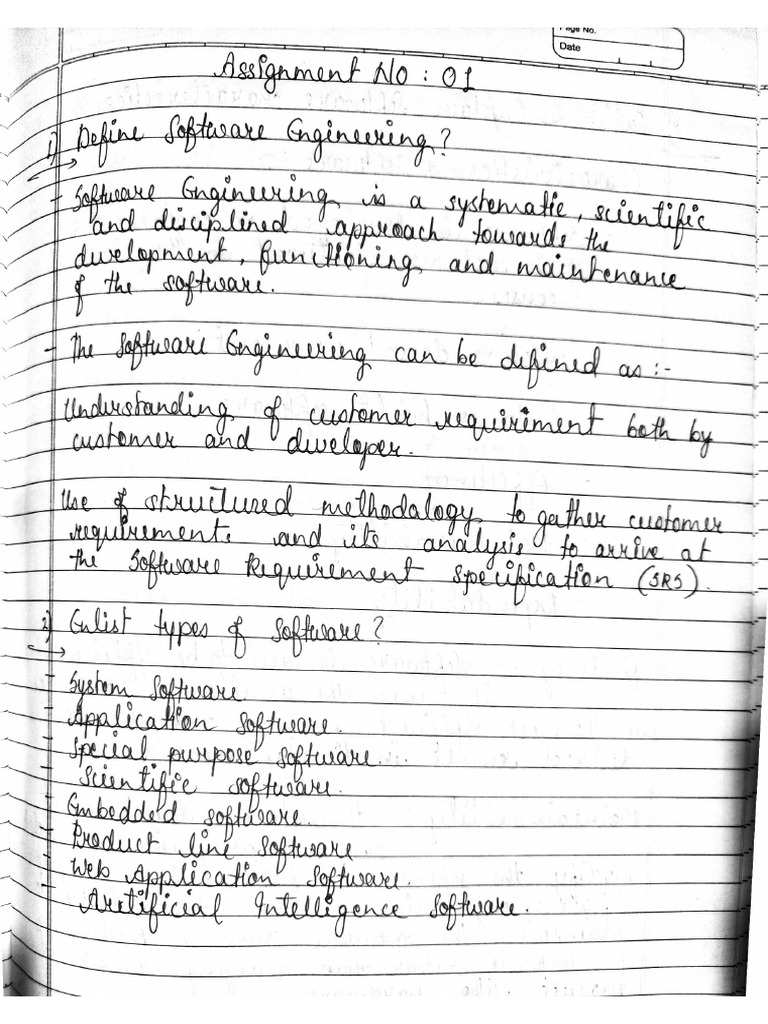 Page No.
Date
Assignment No : 01
1) Define Software Engineering?
- Software Engineering is a systematic, scientific
and disciplined approach towards the
development, functioning and maintenance
of the software.
- The Software Engineering can be defined as :-
Understanding of customer requirement both by
customer and developer.
Use of structured methodalogy to gather customer
requirements and its analysis to arrive at
the Software Requirement Specification (SRS).
2) Enlist types of Software?
- System Software
- Application Software.
- Special purpose Software.
- Scientific Software.
- Embedded Software.
- Product line Software
- Web Application Software.
- Aretificial Intelligence Software.